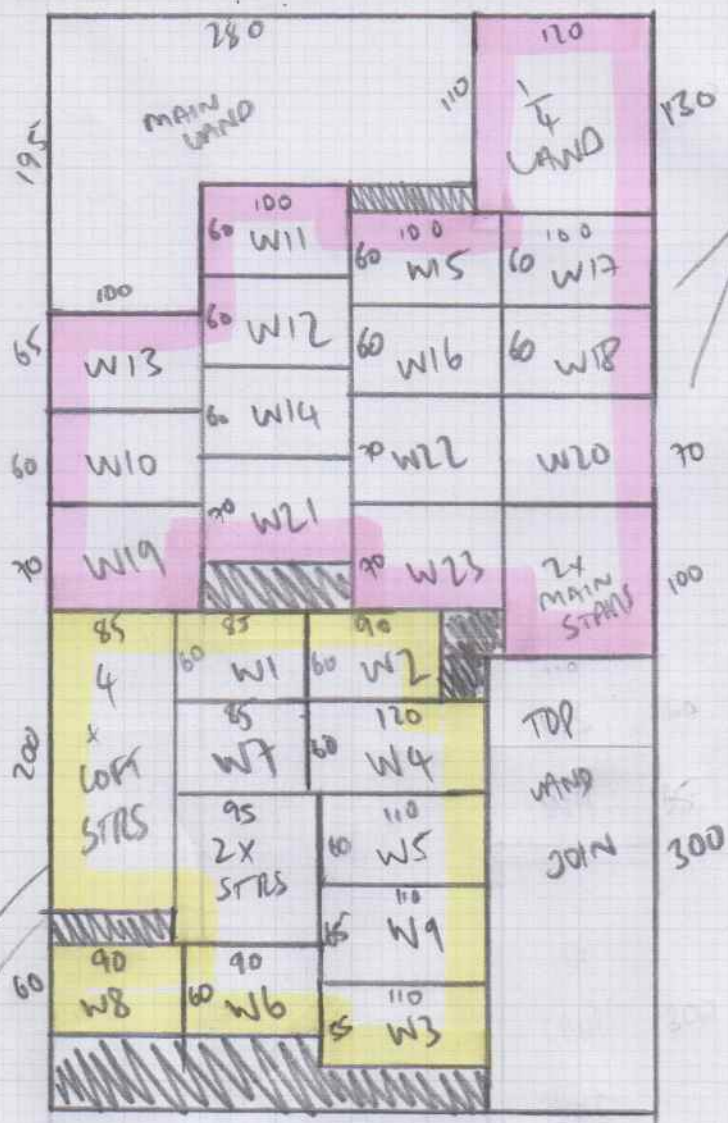 280
120
195
MAIN
LAND
110
1/4
LAND
130
100
60 W11
100
60 W15
100
60 W17
100
65
W13
60 W12
60 W16
60 W18
60
W10
60 W14
70 W22
W20
70
70
W19
70 W21
70 W23
2x
MAIN
STAIRS
100
85
4
x
LOFT
STRS
200
85
60 W1
90
60 W2
85
W7
120
60 W4
TOP
LAND
JOIN
300
95
2X
STRS
110
60 W5
110
65 W9
60
90
W8
90
60 W6
110
55 W3